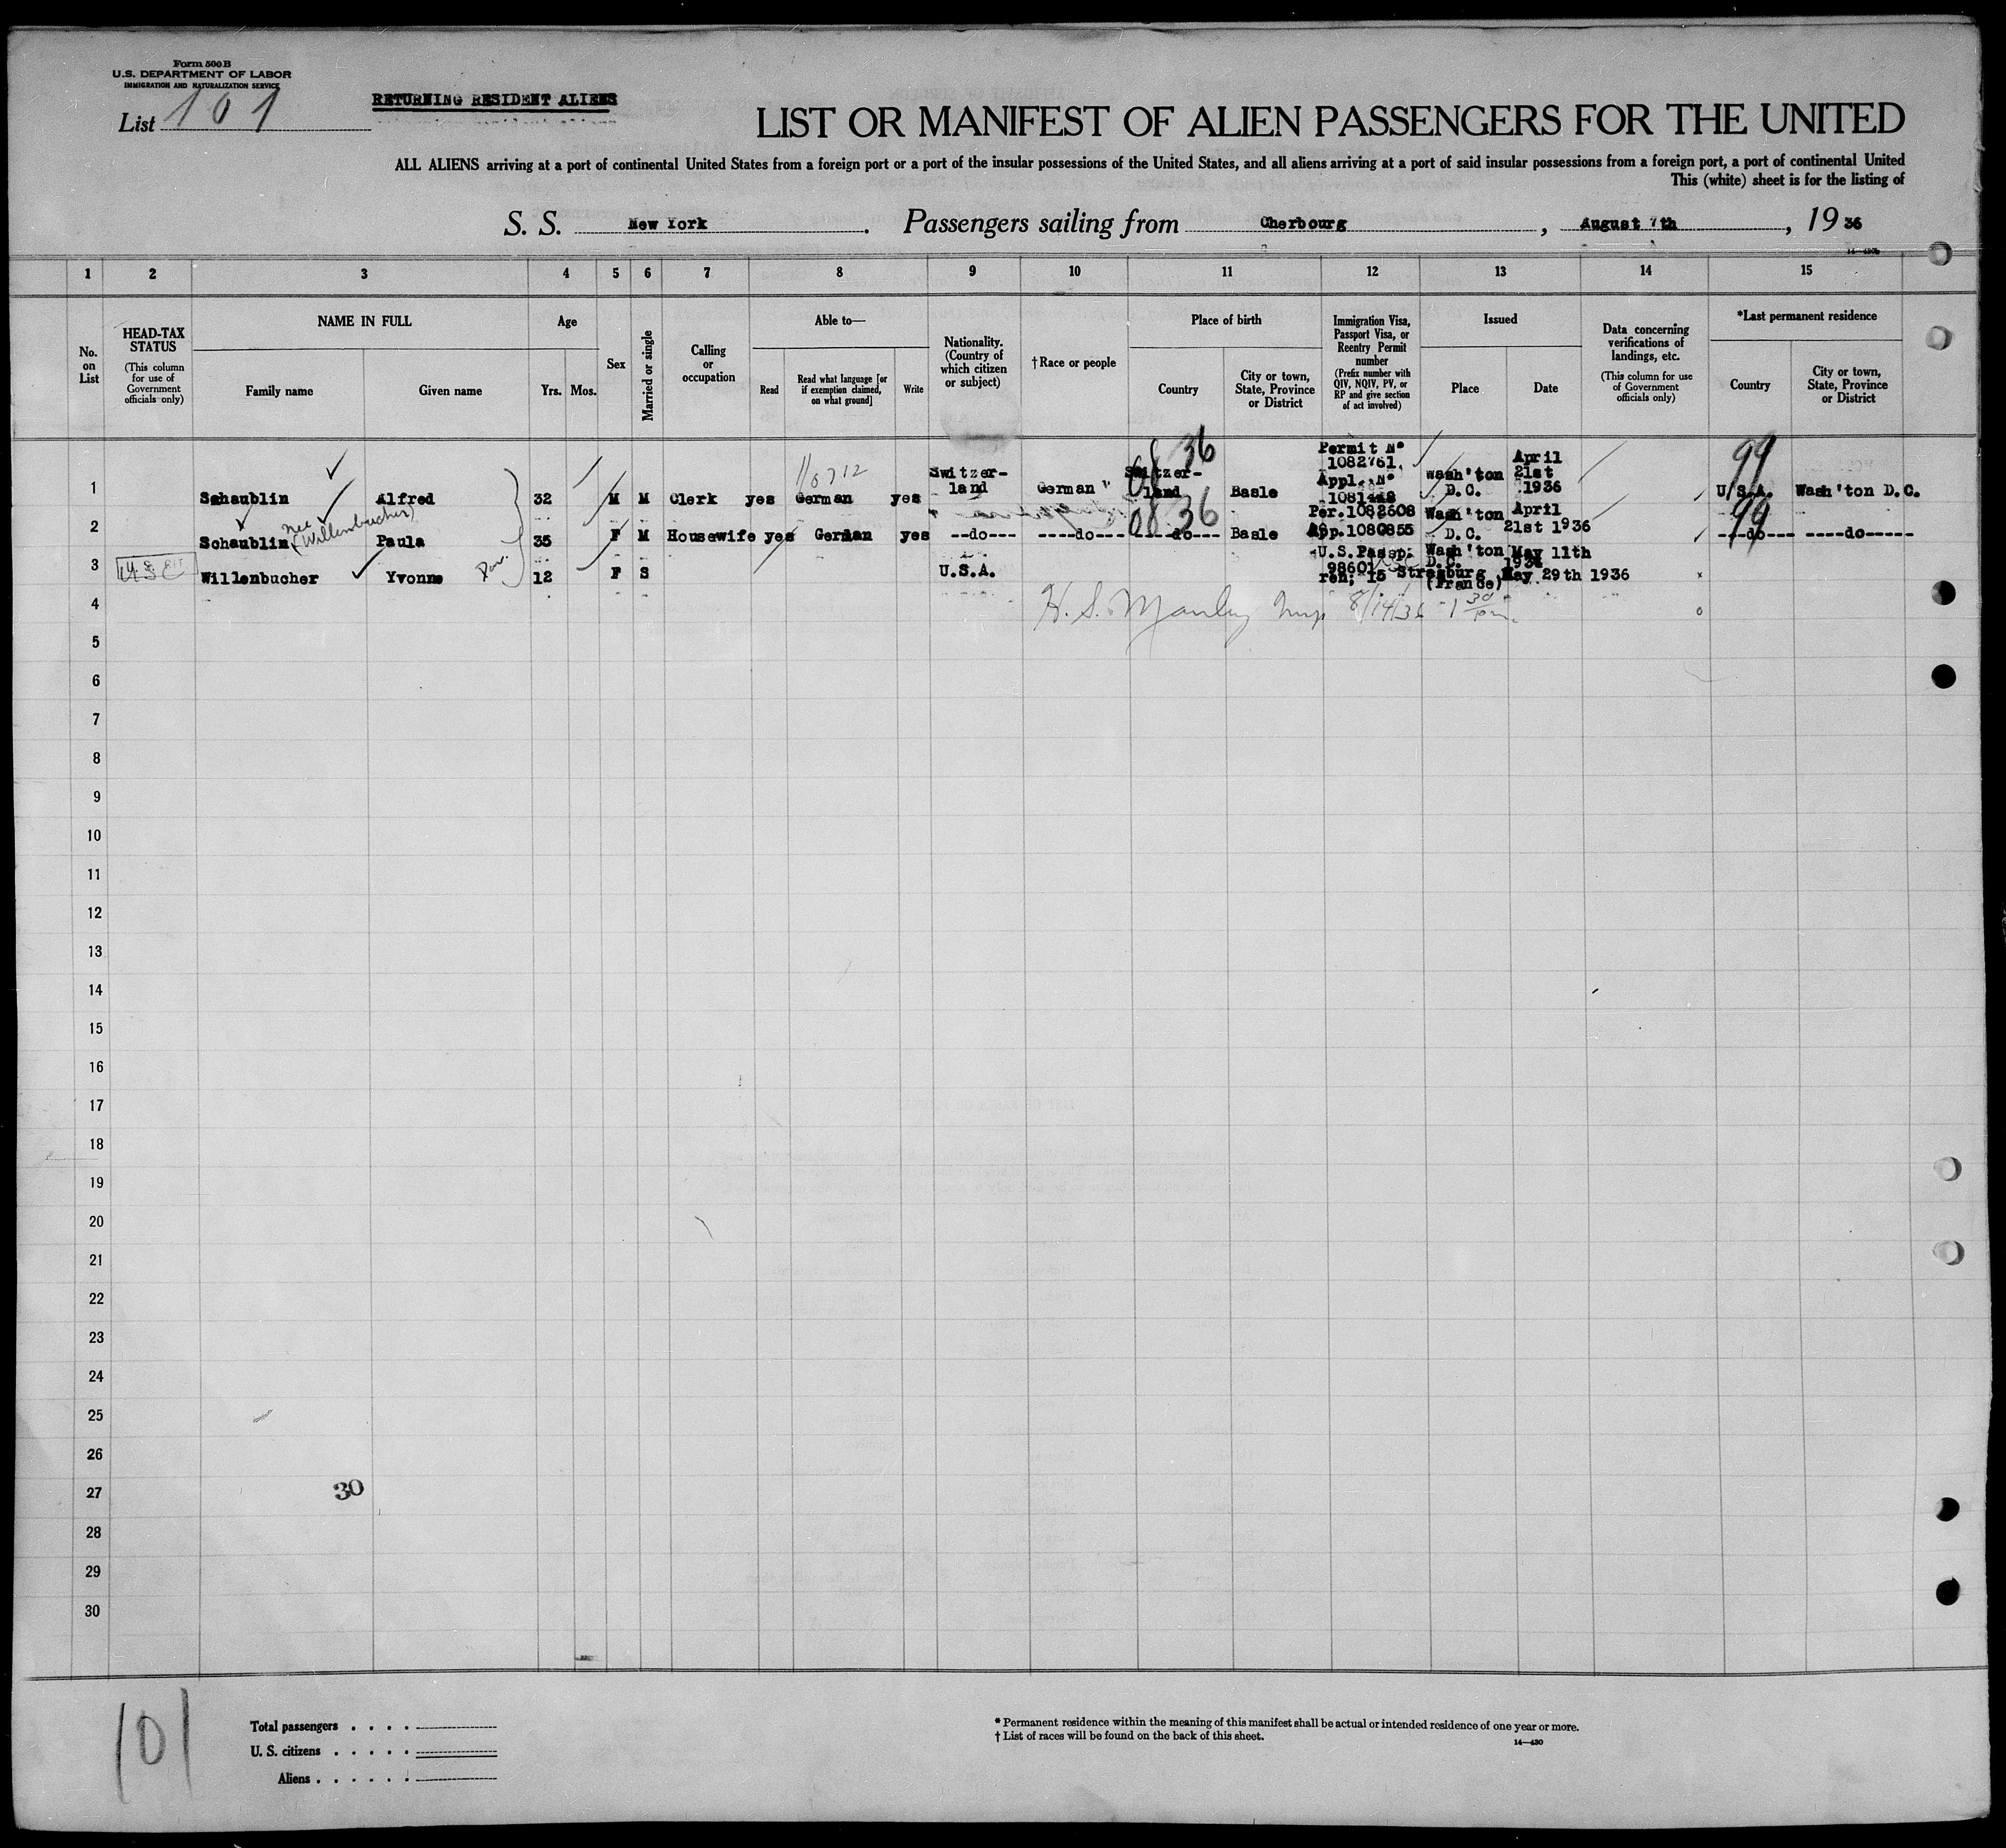 Form 500 B
U.S. DEPARTMENT OF LABOR
IMMIGRATION AND NATURALIZATION SERVICE
List 101
RETURNING RESIDENT ALIENS
LIST OR MANIFEST OF ALIEN PASSENGERS FOR THE UNITED
ALL ALIENS arriving at a port of continental United States from a foreign port or a port of the insular possessions of the United States, and all aliens arriving at a port of said insular possessions from a foreign port, a port of continental United
This (white) sheet is for the listing of
S. S. New York. Passengers sailing from Cherbourg, August 7th, 1936
14—430b
1 2 3 4 5 6 7 8 9 10 11 12 13 14 15
No. on List
HEAD-TAX STATUS
(This column for use of Government officials only)
NAME IN FULL
Family name Given name
Age
Yrs. Mos.
Sex
Married or single
Calling or occupation
Able to—
Read
Read what language [or if exemption claimed, on what ground]
Write
Nationality. (Country of which citizen or subject)
†Race or people
Place of birth
Country
City or town, State, Province or District
Immigration Visa, Passport Visa, or Reentry Permit number
(Prefix number with QIV, NQIV, PV, or RP and give section of act involved)
Issued
Place Date
Data concerning verifications of landings, etc.
(This column for use of Government officials only)
*Last permanent residence
Country
City or town, State, Province or District
1 Schaublin Alfred 32 M M Clerk yes German yes Switzer-land German Switzer-land Basle Permit N° 1082761. Appl. N° Wash'ton D.C. April 21st 1936 U.S.A. Wash'ton D.C.
08 36
99
2 Schaublin (nee Willenbucher) Paula 35 F M Housewife yes German yes --do--- ----do--- ----do--- Basle Per.1082608 App.1080855 Wash'ton D.C. April 21st 1936 ---do--- ----do-----
08 36
99
3 Willenbucher Yvonne 12 F S U.S.A. U.S.Passp. 98601 ren; 15 Wash'ton D.C. May 11th 1936 Strasburg (France) May 29th 1936
H. S. Manley Insp 8/14/36 - 1 30 pm.
4
5
6
7
8
9
10
11
12
13
14
15
16
17
18
19
20
21
22
23
24
25
26
27
30
28
29
30
101
Total passengers . . . .
U. S. citizens . . . . .
Aliens . . . . . .
* Permanent residence within the meaning of this manifest shall be actual or intended residence of one year or more.
† List of races will be found on the back of this sheet.
14—430